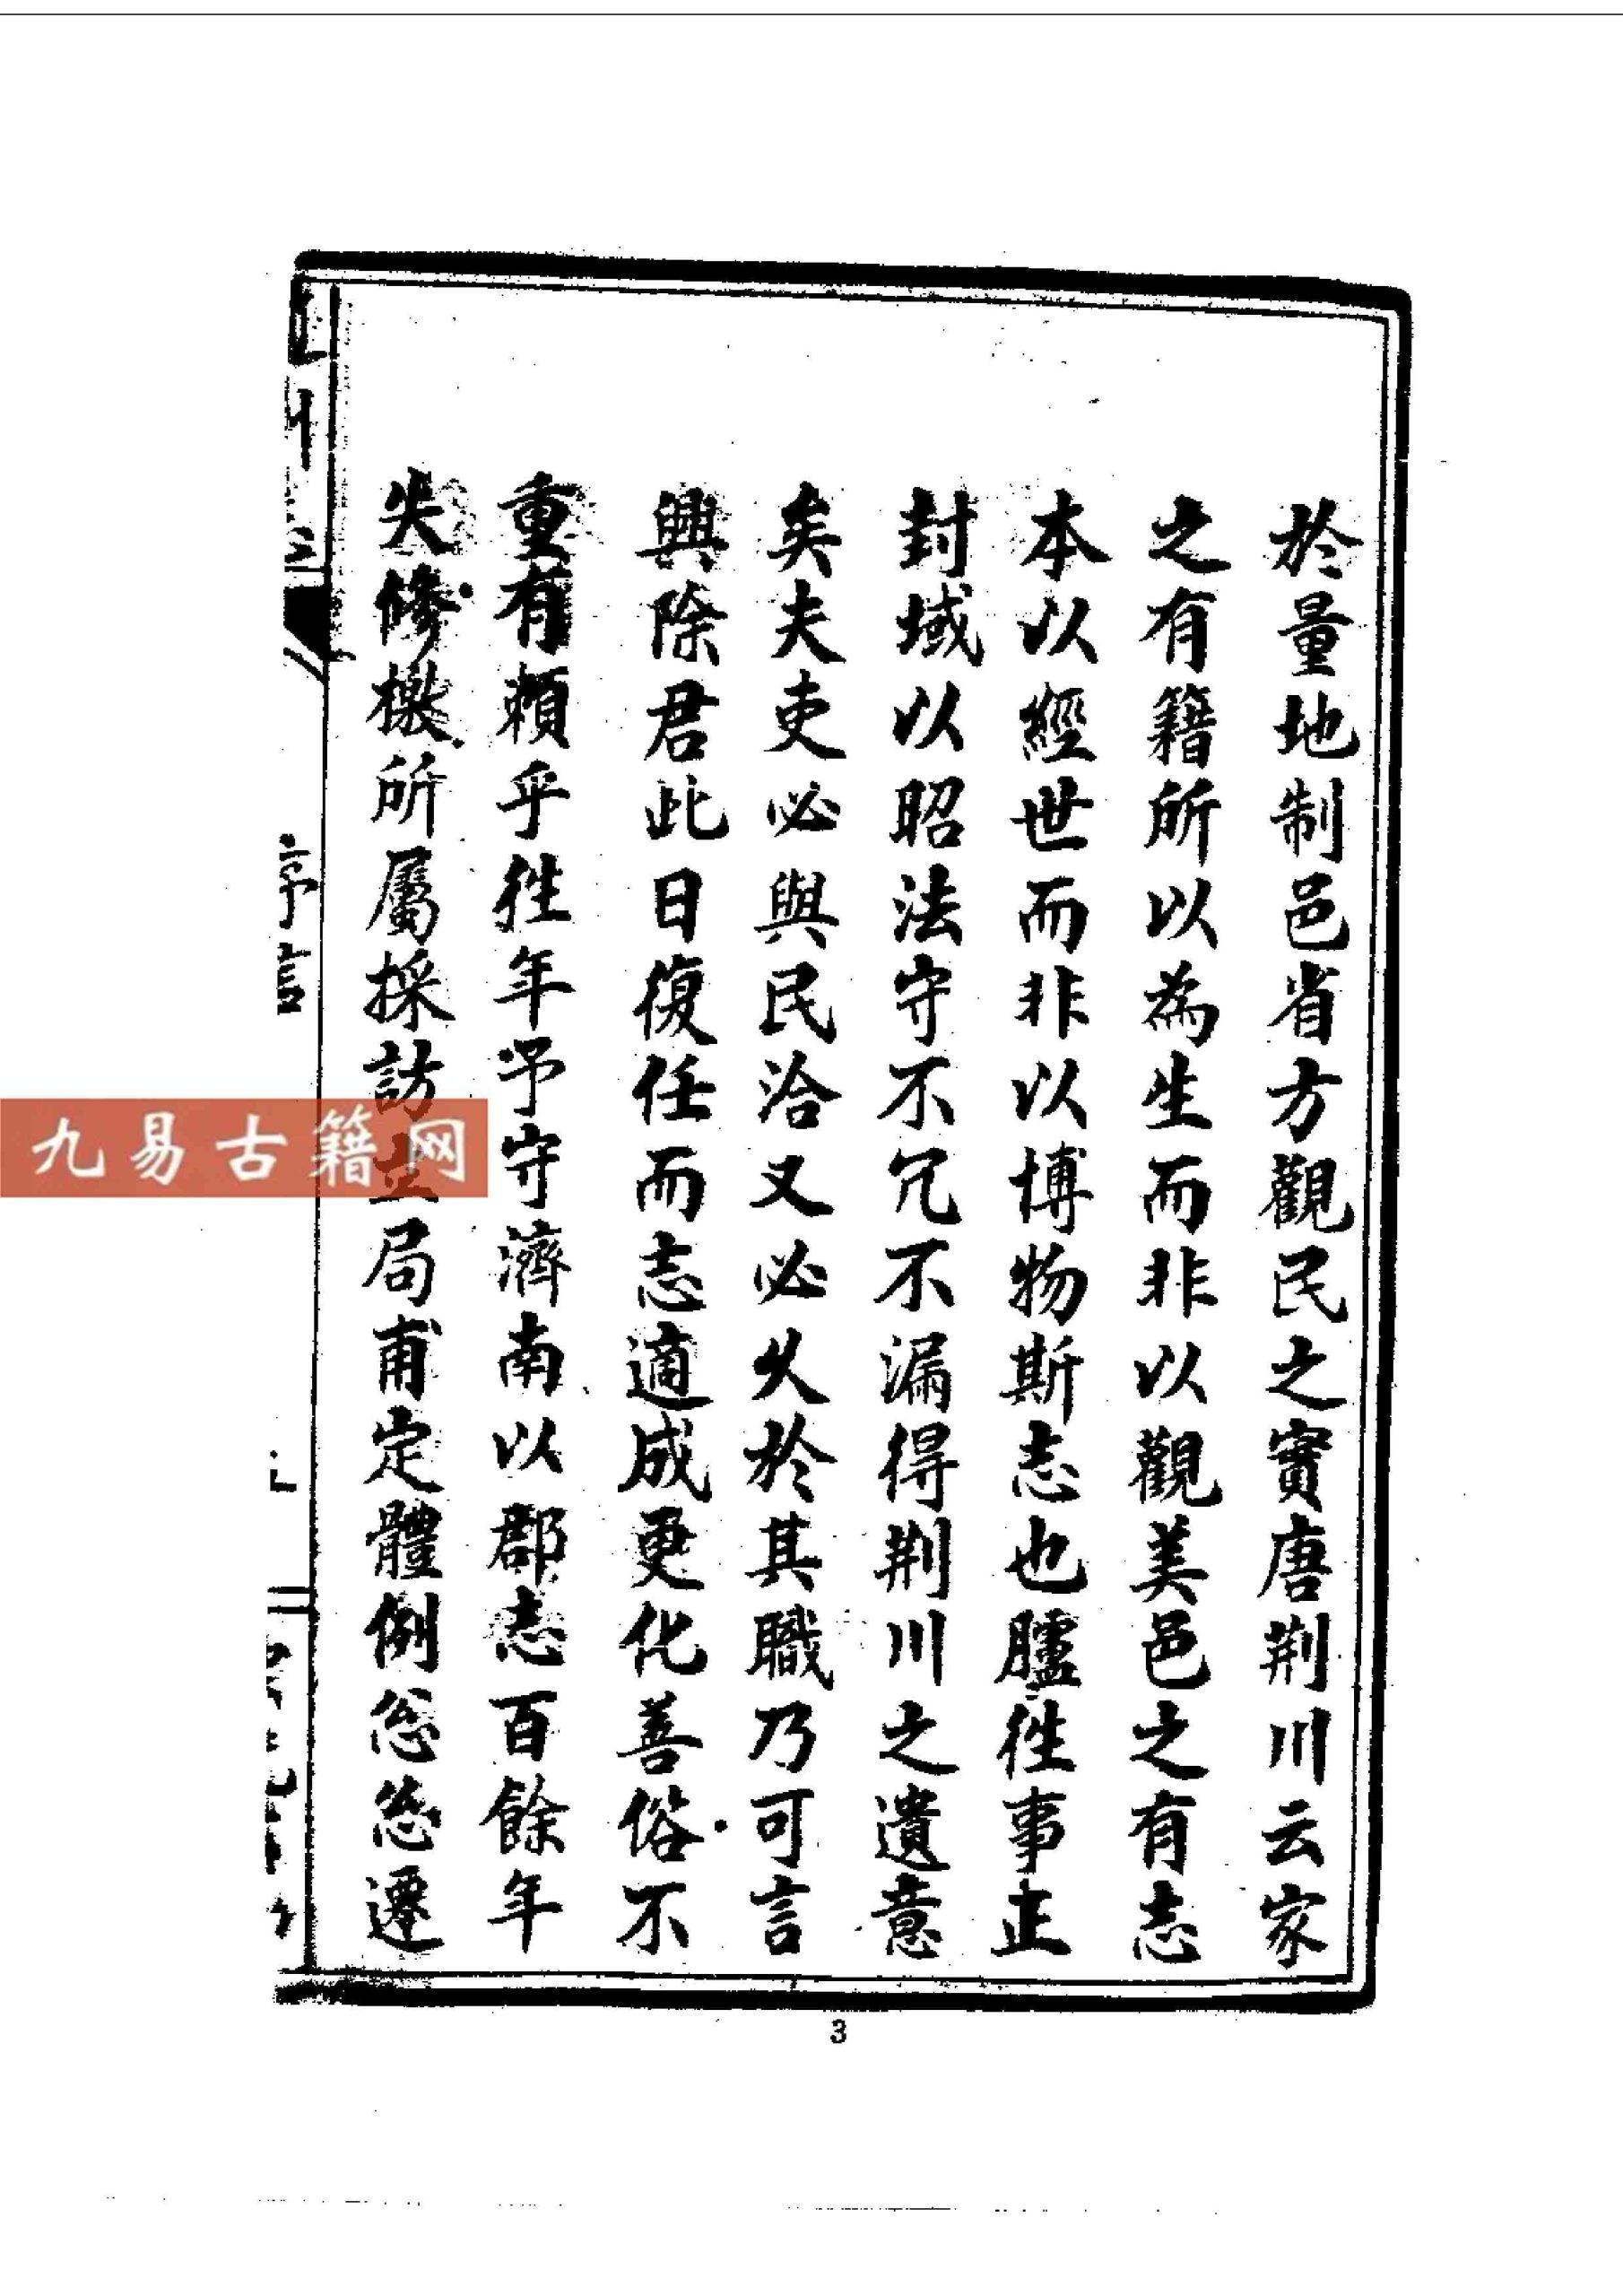 於量地制邑省方觀民之實唐荆川云家
之有籍所以為生而非以觀美邑之有志
本以經世而非以博物斯志也臚徃事正
封域以昭法守不冗不漏得荆川之遺意
矣夫吏必與民洽又必久於其職乃可言
興除君此日復任而志適成更化善俗不
重有賴乎徃年予守濟南以郡志百餘年
失修檄所屬採訪立局甫定體例怱怱遷
序言
九易古籍网
3